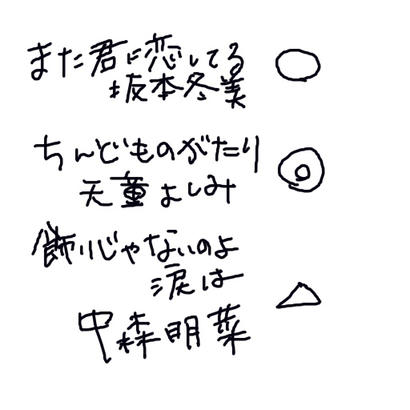 また君に恋してる
坂本冬美
ちんどものがたり
天童よしみ
飾りじゃないのよ
涙は
中森明菜